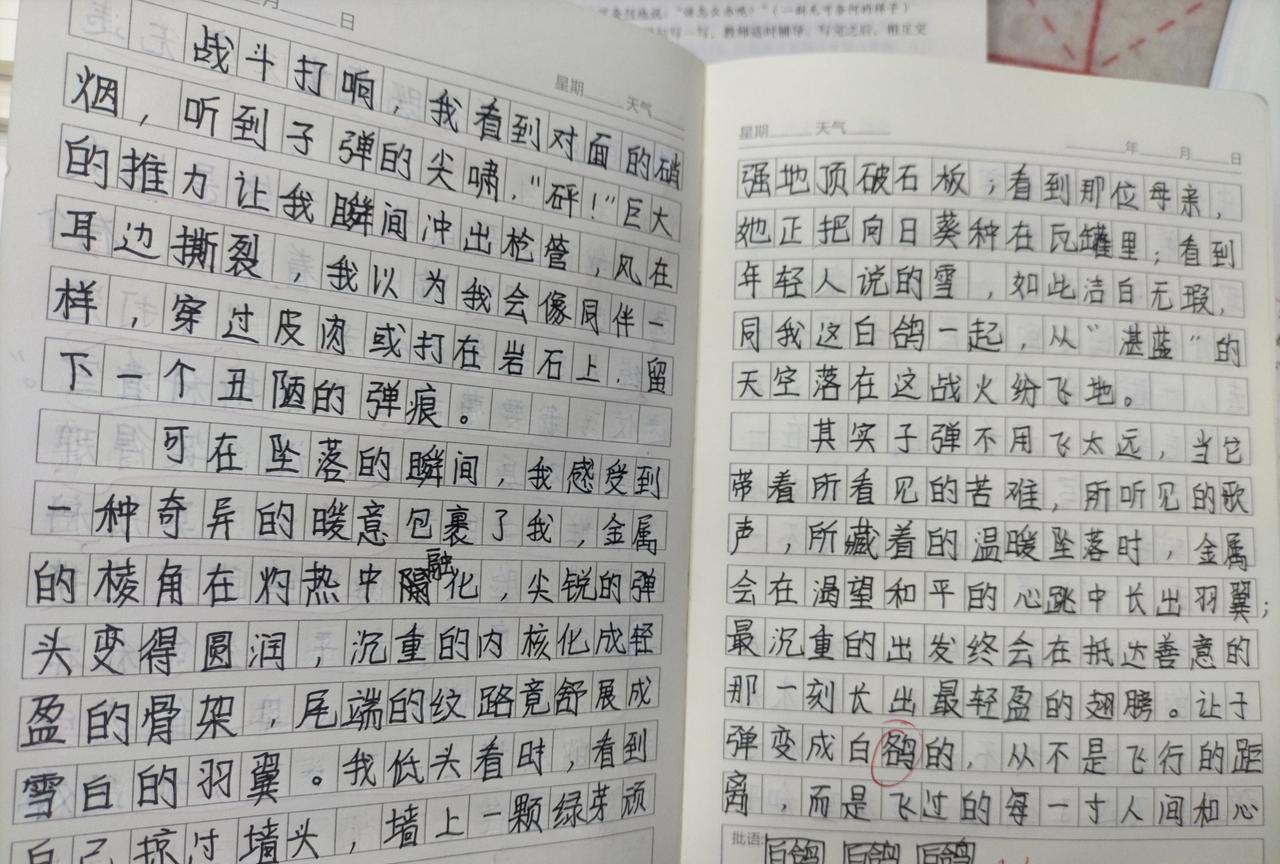 月 日
星期 天气
战斗打响，我看到对面的硝
烟，听到子弹的尖啸."砰!"巨大
的推力让我瞬间冲出枪管，风在
耳边撕裂，我以为我会像同伴一
样，穿过皮肉或打在岩石上.留
下一个丑陋的弹痕。
可在坠落的瞬间，我感受到
一种奇异的暖意包裹了我，金属
的棱角在灼热中融化，尖锐的弹
头变得圆润，沉重的内核化成轻
盈的骨架，尾端的纹路竟舒展成
雪白的羽翼。我低头看时，看到
自己掠过墙头，墙上一颗绿芽顽
星期 天气
年 月 日
强地顶破石板；看到那位母亲，
她正把向日葵种在瓦罐里；看到
年轻人说的雪，如此洁白无瑕，
同我这白鸽一起，从"湛蓝"的
天空落在这战火纷飞地。
其实子弹不用飞太远，当它
带着所看见的苦难，所听见的歌
声，所藏着的温暖坠落时，金属
会在渴望和平的心跳中长出羽翼；
最沉重的出发终会在抵达善意的
那一刻长出最轻盈的翅膀。让子
弹变成白鸽的，从不是飞行的距
离，而是飞过的每一寸人间和心
批语:
白鸽 白鸽 白鸽